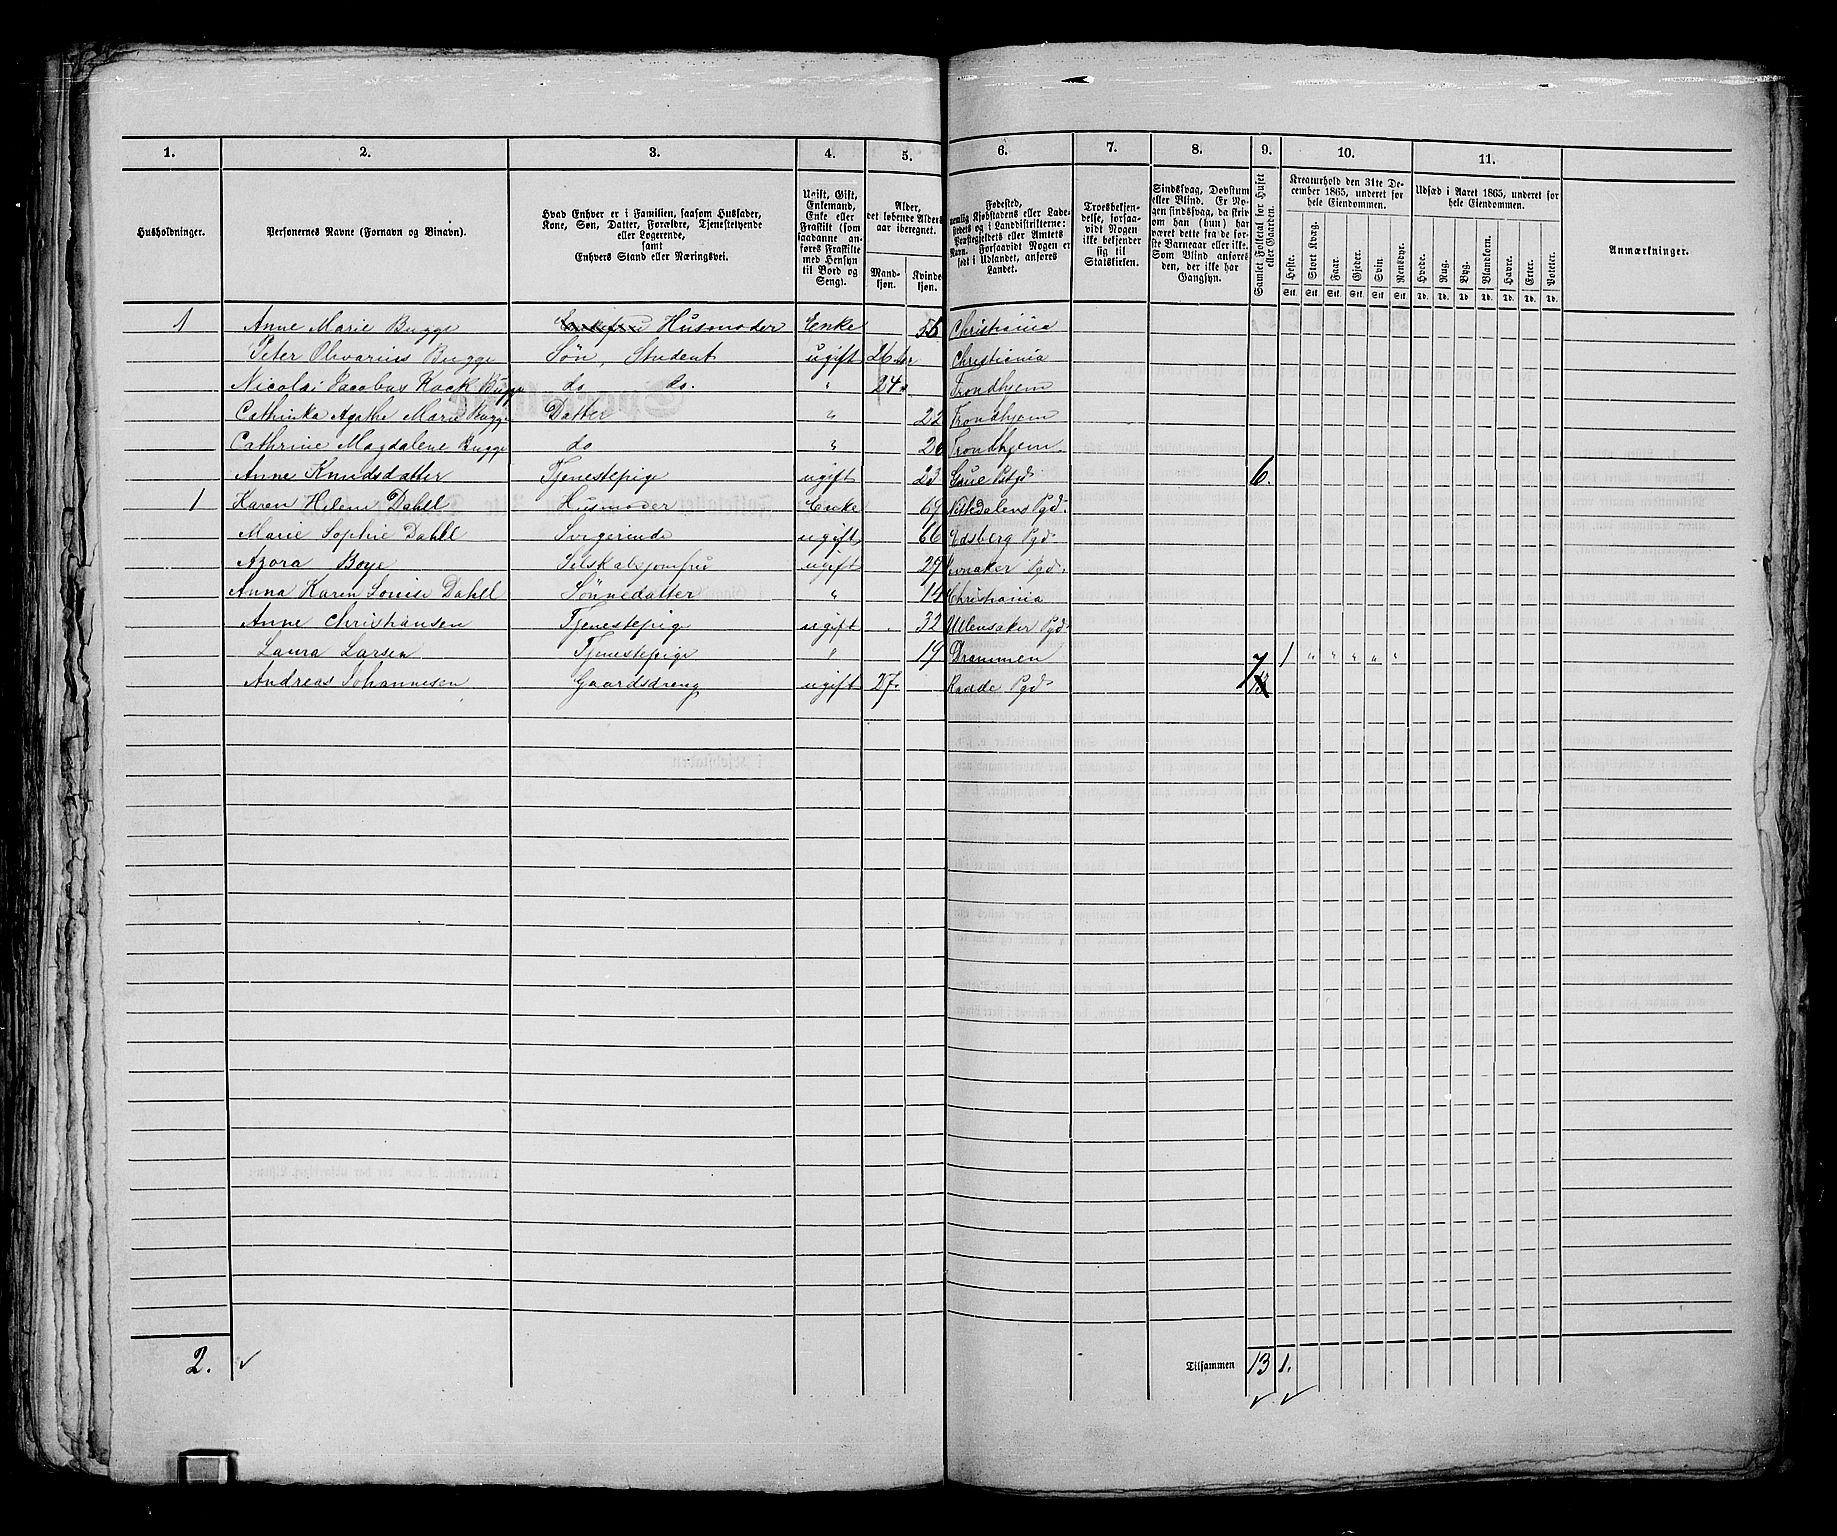 1. 2. 3. 4. 5. 6. 7. 8. 9. 10. 11.
Husholdninger.
Personernes Navne (Fornavn og Binavn).
Hvad Enhver er i Familien, saasom Husfader,
Kone, Søn, Datter, Forældre, Tjenestetyende
eller Logerende,
samt
Enhvers Stand eller Næringsvei.
Ugift, Gift,
Enkemand,
Enke eller
Fraskilt (som
saadanne anføres Fraskilte
med Hensyn
til Bord og
Seng).
Alder,
det løbende Aldersaar iberegnet.
Mandkjøn. Kvindekjøn.
Fødested,
nemlig Kjøbstadens eller Ladestedets og i Landdistrikterne:
Præstegjeldets eller Amtets
Navn. Forsaavidt Nogen er
født i Udlandet, anføres
Landet.
Troesbekjendelse, forsaavidt Nogen
ikke bekjender
sig til
Statskirken.
Sindssvag, Døvstum
eller Blind. Er Nogen sindssvag, da skrives
om han (hun) har
været dette fra de første Barneaar eller ikke.
Som Blind anføres
den, der ikke har
Gangsyn.
Samlet Folketal for Huset
eller Gaarden.
Kreaturhold den 31te December 1865, underet for
hele Eiendommen.
Heste. Stort Kvæg. Faar. Gjeder. Svin. Rensdyr.
Stk. Stk. Stk. Stk. Stk. Stk.
Udsæd i Aaret 1865, underet for
hele Eiendommen.
Hvede. Rug. Byg. Blandkorn. Havre. Erter. Poteter.
Td. Td. Td. Td. Td. Td. Td.
Anmærkninger.
1 Anne Marie Bugge Husmoder Enke 55 Christiania
Peter Olivarius Bugge Søn, Student ugift 26 Christiania
Nicolai Jacobus Kock Bugge do do. " 24 Trondhjem
Cathinka Agathe Marie Bugge Datter " 22 Trondhjem
Cathrine Magdalene Bugge do " 20 Trondhjem.
Anne Knudsdatter Tjenestepige ugift 23 Pgd 6.
1 Karen Helene Dahll Husmoder Enke 69 Nittedalens Pgd.
Marie Sophie Dahll Svigerinde ugift 66 Edsberg Pgd
Azora Boye Selskabsjomfru ugift 29 Jevnaker Pgd.
Anna Karen Louise Dahll Sønnedatter " 14 Christiania
Anne Christiansen Tjenestepige ugift 32 Ullensaker Pgd
Laura Larsen Tjenestepige " 19 Drammen 1 " " " " "
Andreas Johannesen Gaardsdreng ugift 27. Raade Pgd 7
2. Tilsammen 13 1.